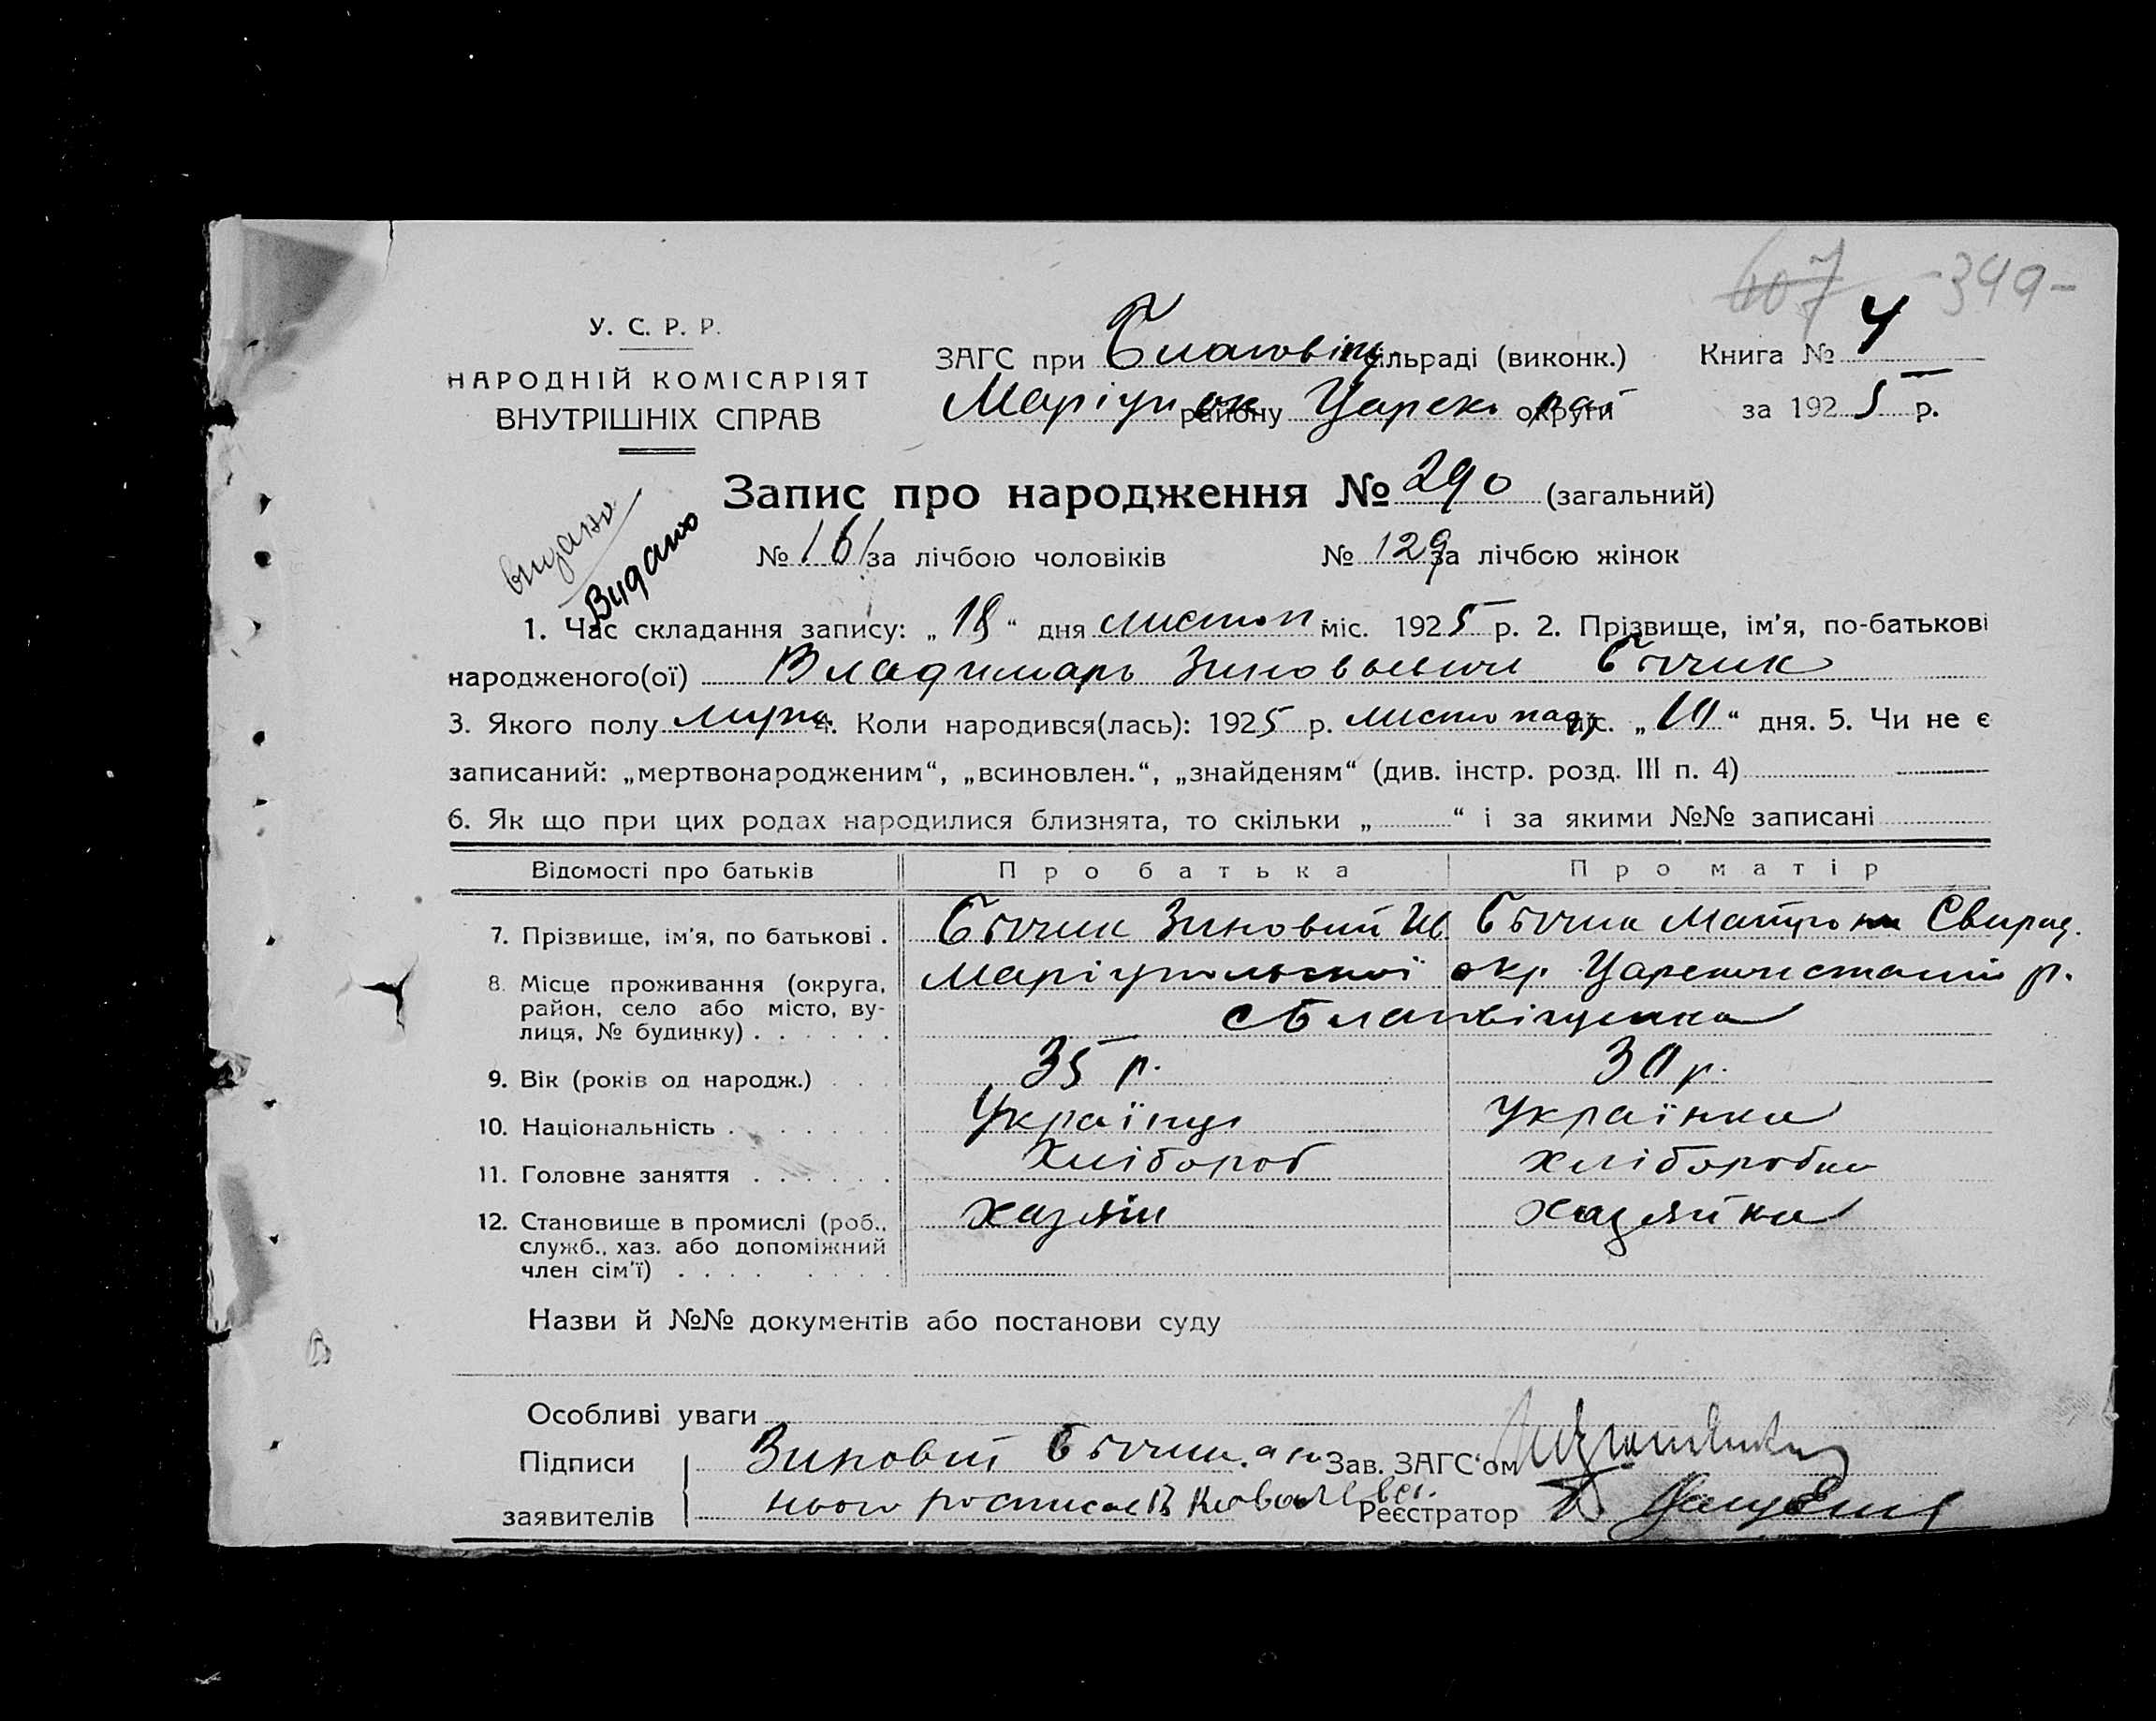 607 -349-
У. С. Р. Р.
НАРОДНІЙ КОМІСАРІЯТ
ВНУТРІШНІХ СПРАВ
ЗАГС при Благовіщ. сільраді (виконк.) Книга № 4
Маріуп. ок. району Царек. рай округи за 1925 р.
Видано
Видано
Запис про народження № 290 (загальний)
№ 161 за лічбою чоловіків № 129 за лічбою жінок
1. Час складання запису: „18“ дня листоп. міс. 1925 р. 2. Прізвище, ім’я, по-батькові
народженого(ої) Владимиръ Зиновьевич
3. Якого полу муж. 4. Коли народився(лась): 1925 р. листопад міс. „10“ дня. 5. Чи не є
записаний: „мертвонародженим“, „всиновлен.“, „знайденям“ (див. інстр. розд. III п. 4)
6. Як що при цих родах народилися близнята, то скільки „ “ і за якими №№ записані
Відомості про батьків Про батька Про матір
7. Прізвище, ім’я, по батькові . Зиновий Матрона Свирид.
8. Місце проживання (округа, Маріупольської окр. р.
район, село або місто, ву- с Благовіщенка
лиця, № будинку) . . . . . .
9. Вік (років од народж.) . . . 35 р. 30 р.
10. Національність . . . . . . Українц Українка
11. Головне заняття . . . . . . Хлібороб хліборобка
12. Становище в промислі (роб., хазяїн хазяйка
служб., хаз. або допоміжний
член сім’ї) . . . . . . . .
Назви й №№ документів або постанови суду
Особливі уваги
Підписи Зиновий а за Зав. ЗАГС‘ом
заявителів нього росписався Реєстратор